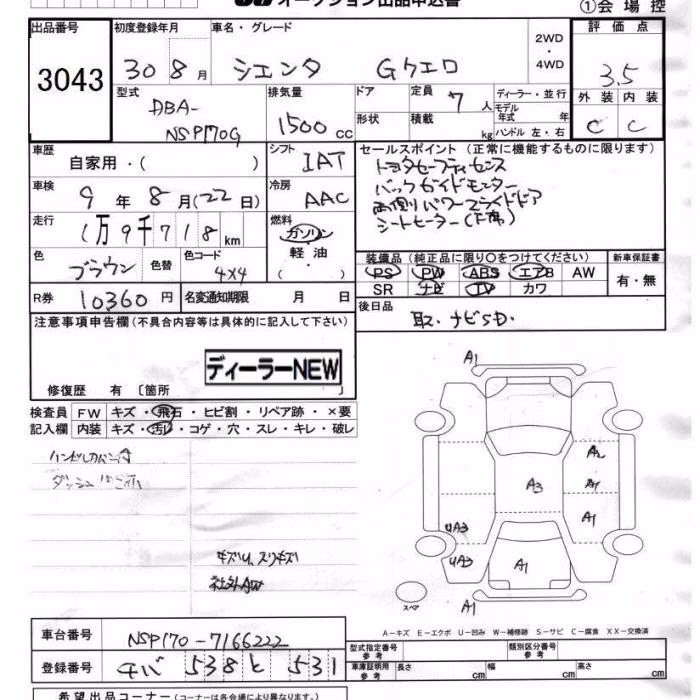 オークション出品申込書
①会場控
出品番号 初度登録年月 車名・グレード 評価点
3043 30 8月 シエンタ Gクエロ 2WD・4WD 3.5
型式 排気量 ドア 定員 7人 ディーラー・並行 外装 内装
DBA-NSP170G 1500cc 形状 積載 kg モデル年式 年 ハンドル 左・右 C C
車歴 自家用・( ) シフト IAT セールスポイント (正常に機能するものに限ります)
トヨタセーフティセンス
バックガイドモニター
両側パワースライドドア
シートヒーター(F席)
車検 9年8月(22日) 冷房 AAC
走行 1万9千718km 燃料 ガソリン 軽油・( )
色 ブラウン 色替 色コード 4X4
装備品 (純正品に限り○をつけてください) 新車保証書
PS PW ABS エアB AW 有・無
SR ナビ TV カワ
R券 10360円 名変通知期限 月 日
後日品 取.ナビSD.
注意事項申告欄(不具合内容等は具体的に記入して下さい)
ディーラーNEW
修復歴 有 〔箇所 〕
検査員 FW キズ・飛石・ヒビ割・リペア跡・×要
記入欄 内装 キズ・汚レ・コゲ・穴・スレ・キレ・破レ
キズ小、スリキズ
社外AW
A1
A2
A3 A1
A1
UA3
UA3 A1
スペア A1
A-キズ E-エクボ U-凹み W-補修跡 S-サビ C-腐食 XX-交換済
車台番号 NSP170-7166222
型式指定番号 参考 類別区分番号 参考
登録番号 チバ 538 と 531
車庫証明用参考 長さ cm 幅 cm 高さ cm
希望出品コーナー (コーナーは各会場により異なります。)